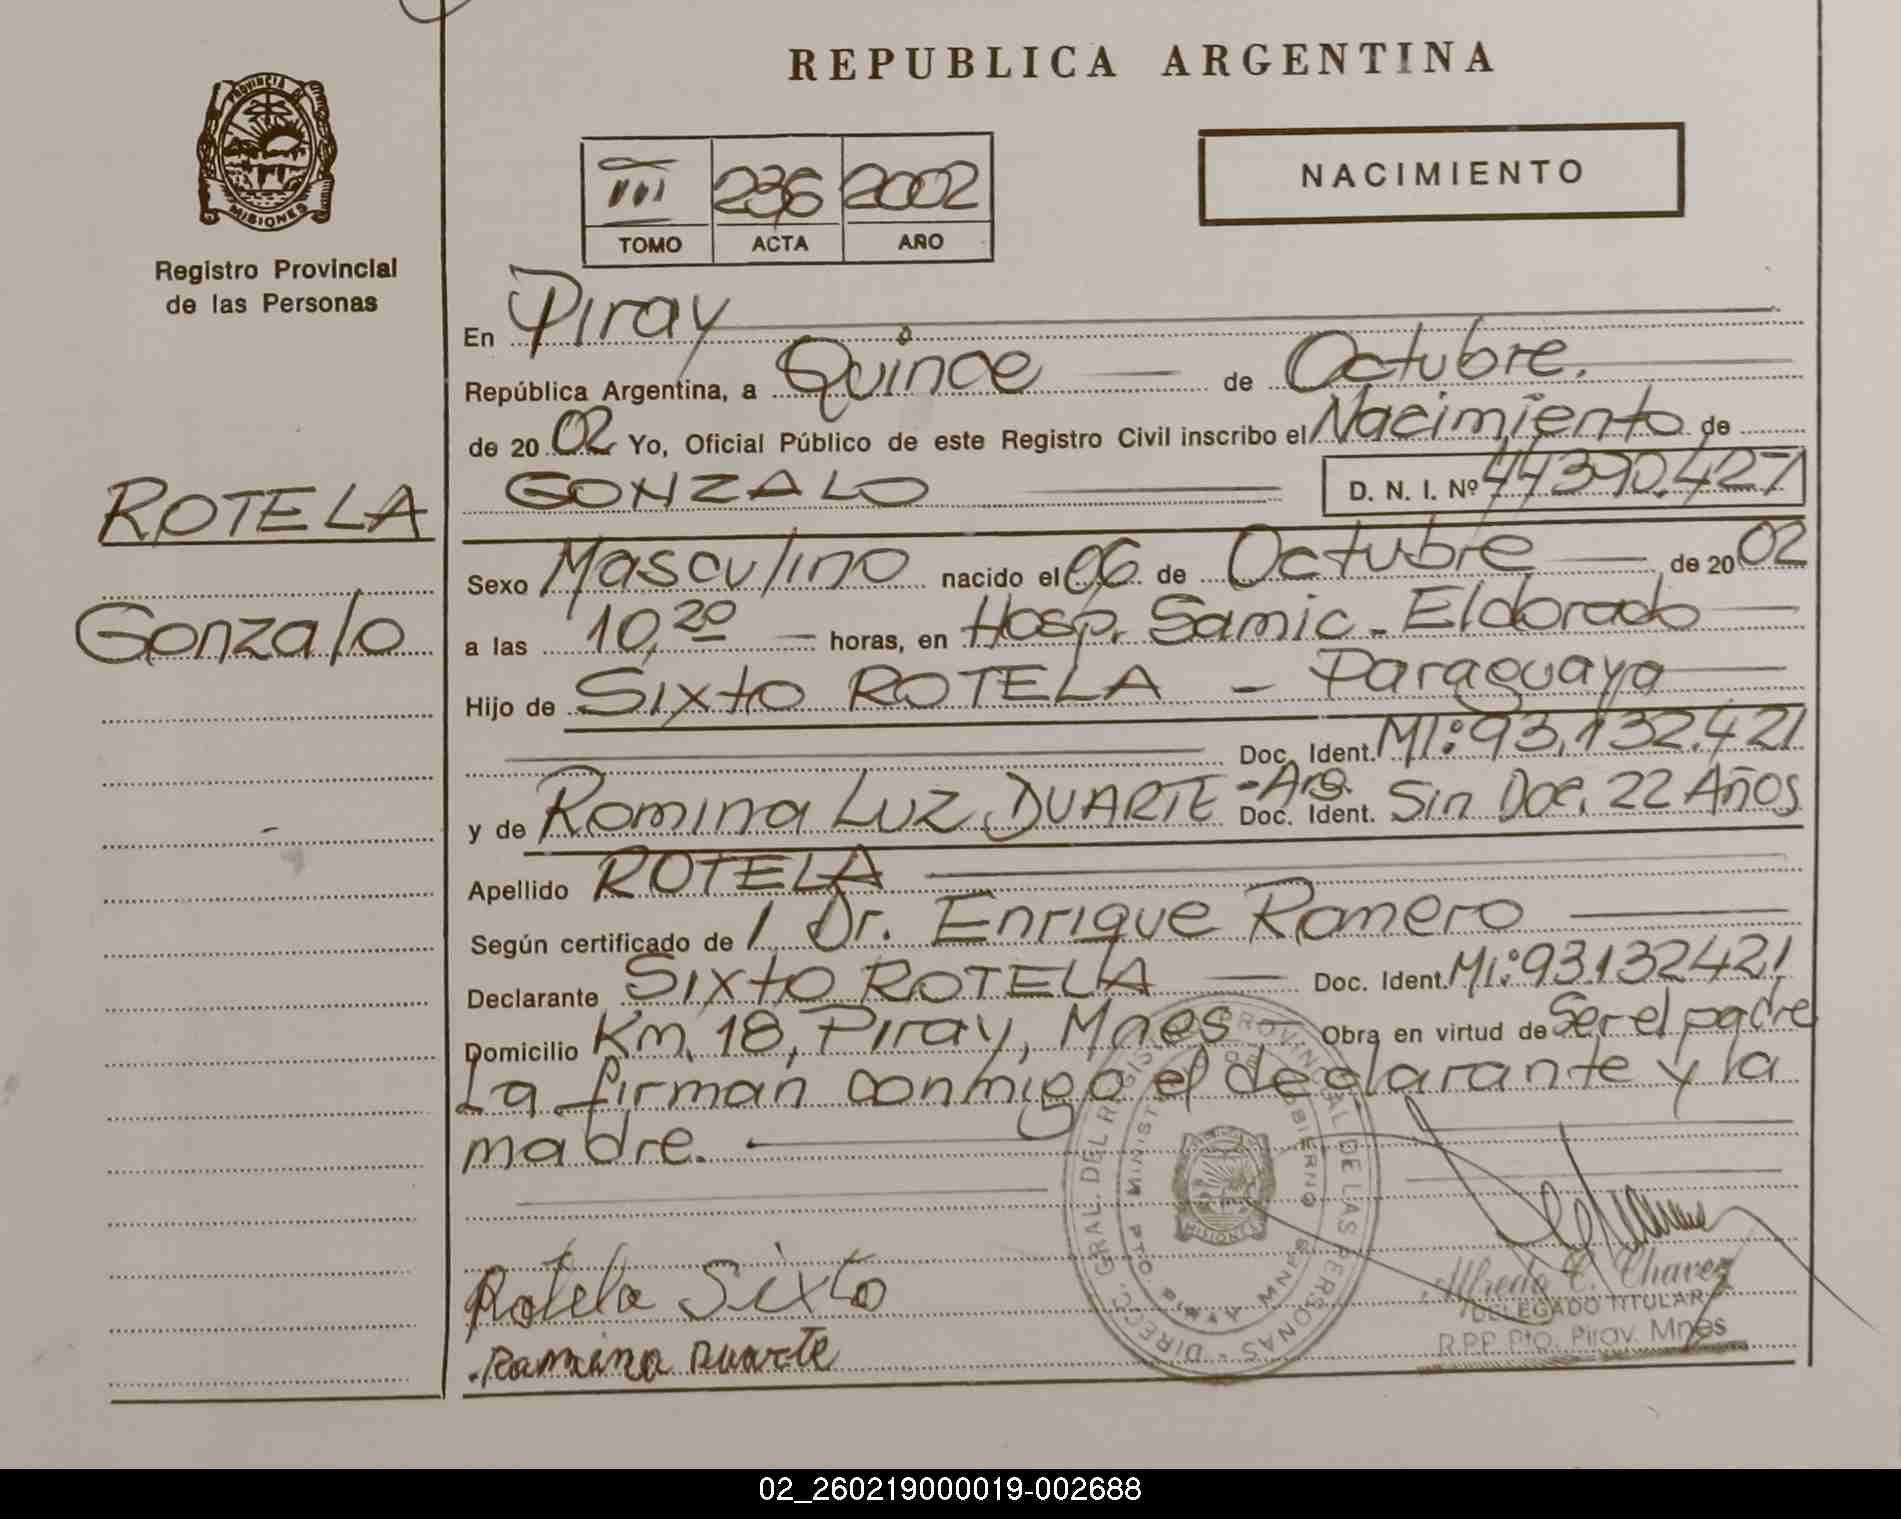 REPUBLICA ARGENTINA
PROVINCIA DE
MISIONES
Registro Provincial
de las Personas
III 236 2002
TOMO ACTA AÑO
NACIMIENTO
En Piray
República Argentina, a Quince de Octubre.
de 2002 Yo, Oficial Público de este Registro Civil inscribo el Nacimiento de
GONZALO D. N. I. Nº 44390.427
ROTELA
Gonzalo
Sexo Masculino nacido el 06 de Octubre de 2002
a las 10,20 horas, en Hosp. Samic - Eldorado
Hijo de Sixto ROTELA - Paraguaya
Doc. Ident. MI: 93.132.421
y de Romina Luz DUARTE - Arg. Doc. Ident. Sin Doc. 22 Años
Apellido ROTELA
Según certificado de / Dr. Enrique Romero
Declarante Sixto ROTELA Doc. Ident. MI: 93.132421
Domicilio Km. 18, Piray, Mnes Obra en virtud de Ser el padre
La firman conmigo el declarante y la
madre.
DIRECC. GRAL. DEL REGISTRO PROVINCIAL DE LAS PERSONAS
MINISTERIO DE GOBIERNO
PTO. PIRAY MNES
MISIONES
Rotela Sixto
Romina Duarte
Alfredo C. Chavez
DELEGADO TITULAR
R.P.P. Pto. Piray. Mnes
02_260219000019-002688